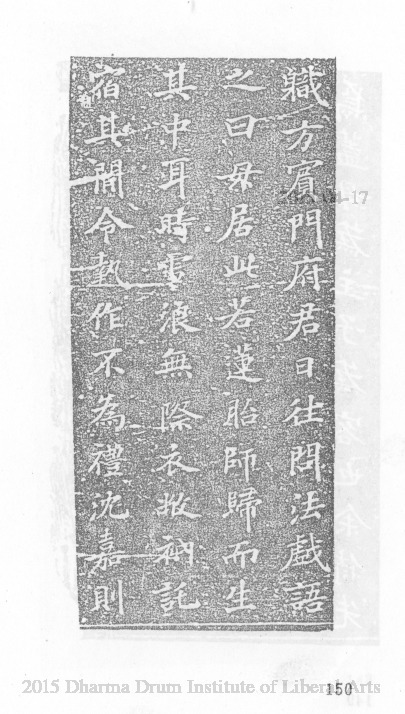 軄方賓門府君日往問法戲語
之曰毋居此若蓮胎師歸而生
其中耳時雪浪無際衣掖衲託
宿其間令執作不為禮沈嘉則
150
2015 Dharma Drum Institute of Liberal Arts